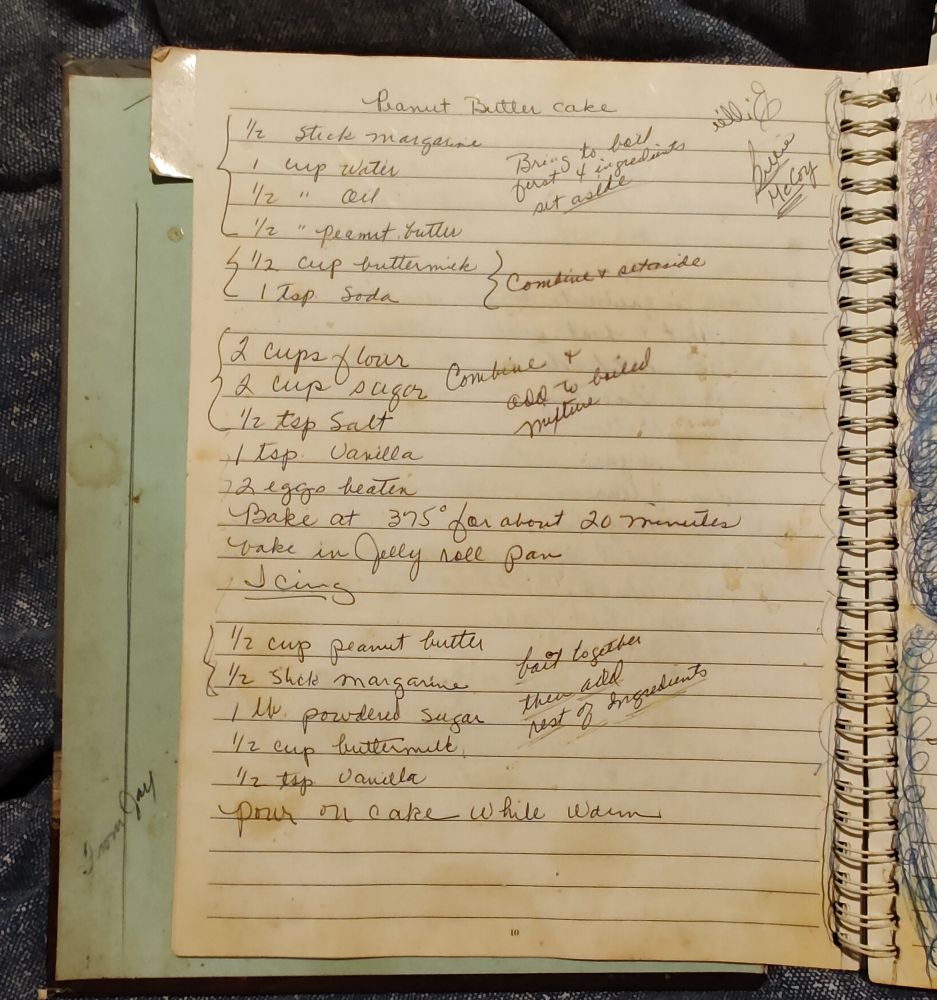 Peanut Butter Cake
Billie
Billie
McCoy
1/2 Stick margarine
1 cup water
1/2 " Oil
1/2 " peanut butter
Bring to boil
first 4 ingredients
set aside
1/2 cup buttermilk
1 tsp Soda
Combine & set aside
2 cups flour
2 cup sugar
1/2 tsp Salt
Combine &
add to boiled
mixture
1 tsp Vanilla
2 eggs beaten
Bake at 375° for about 20 minutes
bake in Jelly roll pan
Icing
1/2 cup peanut butter
1/2 Stick margarine
boil together
then add
rest of Ingredients
1 lb. powdered sugar
1/2 cup buttermilk
1/2 tsp Vanilla
pour on cake while warm
From Jay
10